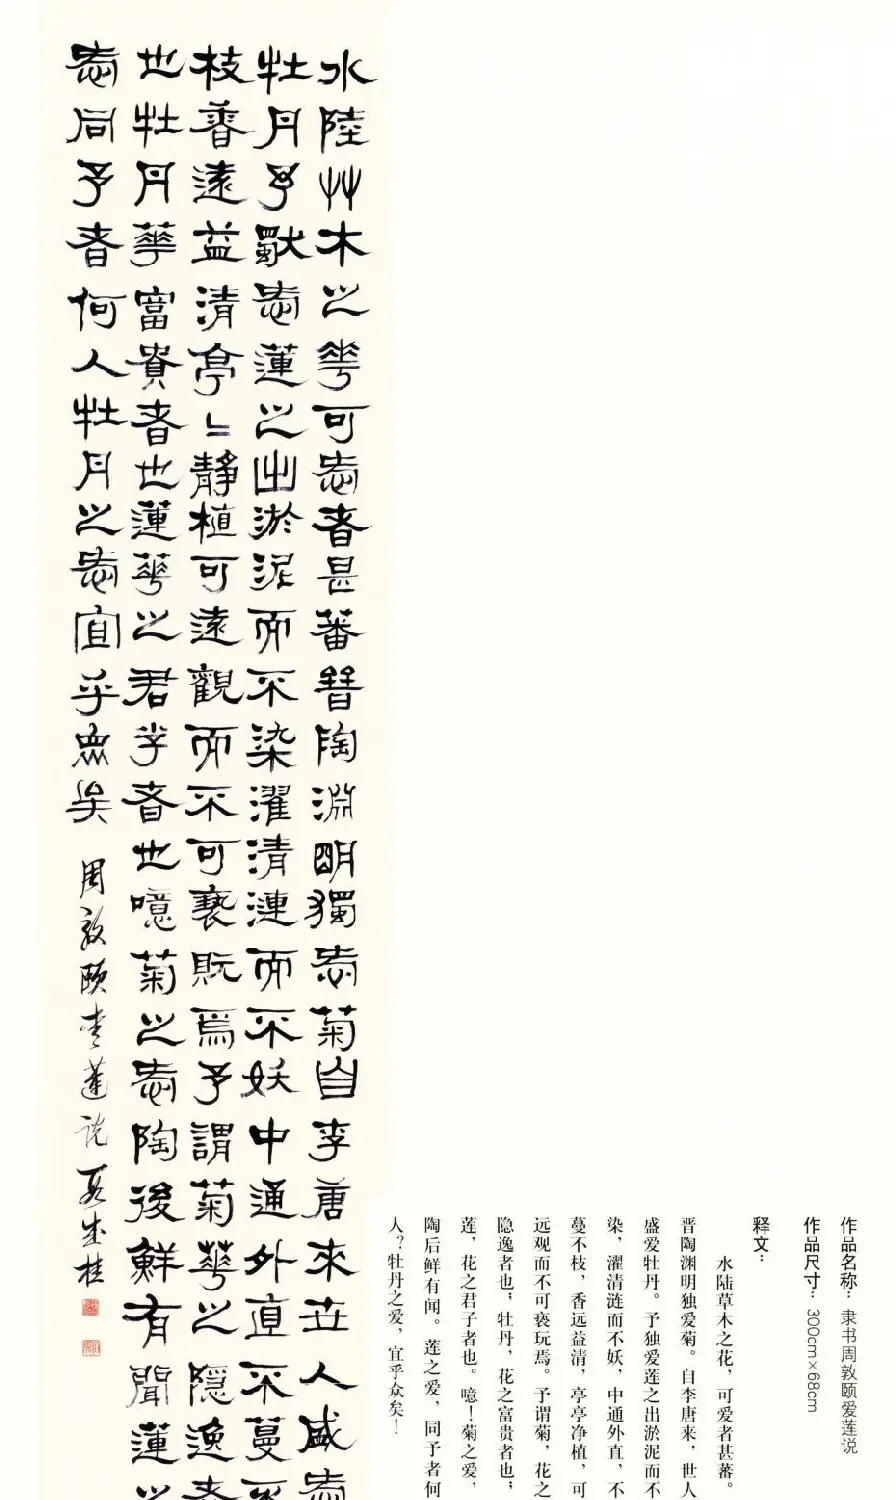 作品名称：隶书周敦颐爱莲说
作品尺寸：300cm×68cm
释文：
水陆草木之花，可爱者甚蕃。
晋陶渊明独爱菊。自李唐来，世人
盛爱牡丹。予独爱莲之出淤泥而不
染，濯清涟而不妖，中通外直，不
蔓不枝，香远益清，亭亭净植，可
远观而不可亵玩焉。予谓菊，花之
隐逸者也；牡丹，花之富贵者也；
莲，花之君子者也。噫！菊之爱，
陶后鲜有闻。莲之爱，同予者何
人？牡丹之爱，宜乎众矣！
水陸艸木之華可㤅者甚蕃晉陶淵明獨㤅菊自李唐來世人盛㤅
牡丹予獨㤅蓮之出淤泥而不染濯清漣而不妖中通外直不蔓不
枝香遠益清亭〻靜植可遠觀而不可褻貦焉予謂菊華之隱逸者
也牡丹華富貴者也蓮華之君子者也噫菊之㤅陶後鮮有聞蓮之
㤅同予者何人牡丹之㤅宜乎衆矣 周敦頤愛蓮說 段成桂